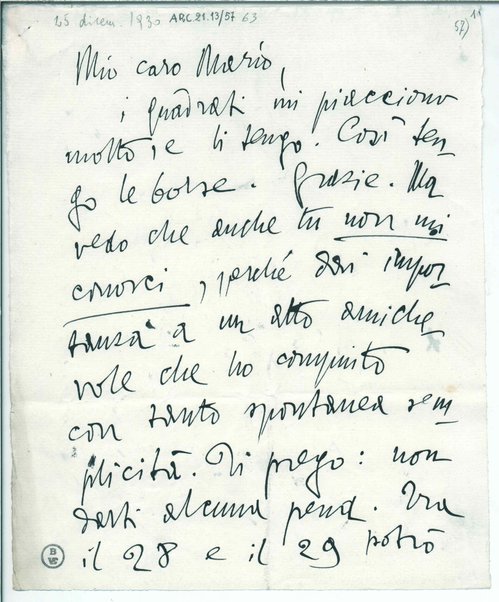 25 dicem. 1930 ARC 21.13/57 63
57)
Mio caro Mario,
i quadrati mi piacciono
molto; e li tengo. Così ten-
go le borse. Grazie. Ma
vedo che anche tu non mi
conosci, perché dai impor-
tanza a un atto amiche
vole che ho compiuto
con tanto spontanea sem-
plicità. Ti prego: non
darti alcuna pena. Tra
il 28 e il 29 potrò